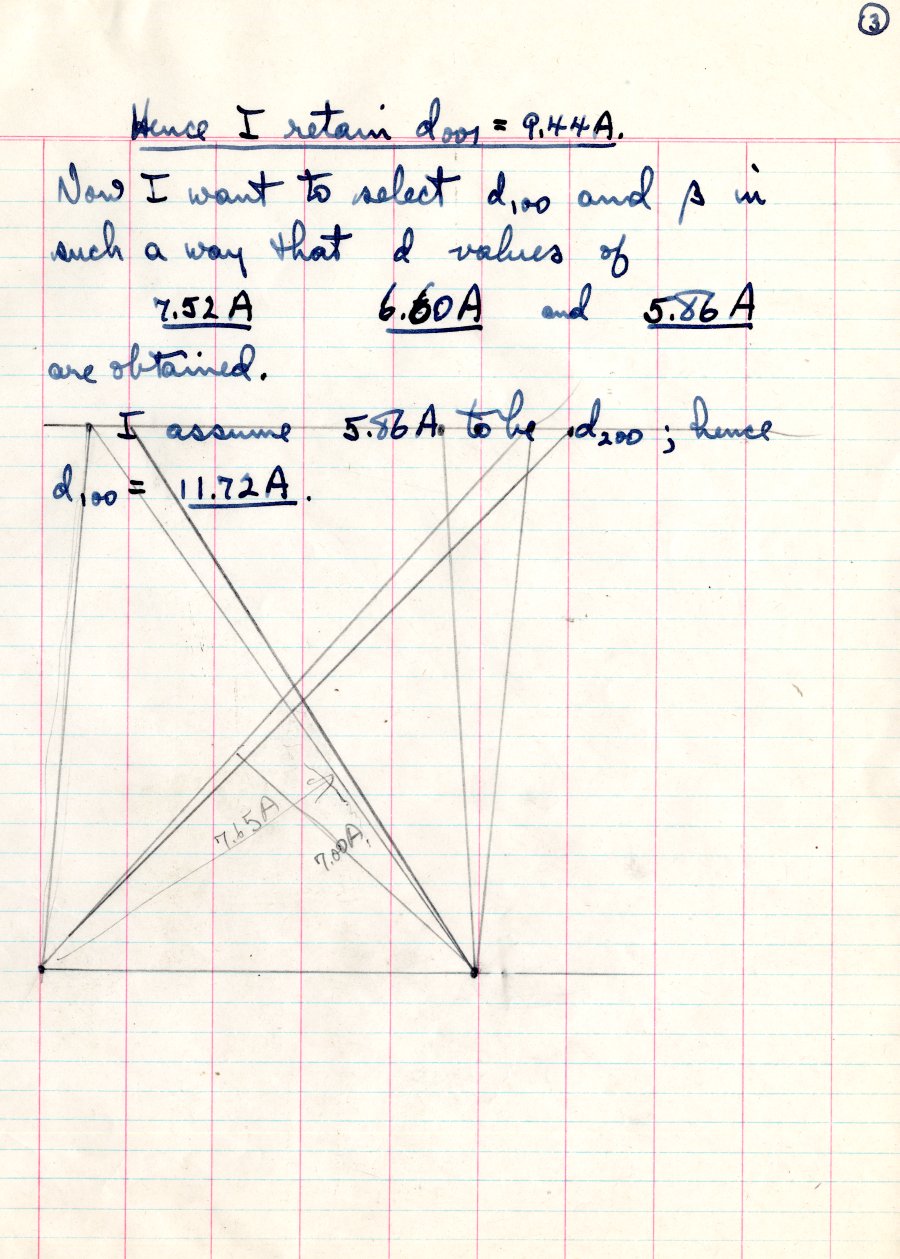 3
Hence I retain d001 = 9.44A.
Now I want to select d100 and β in
such a way that d values of
7.52A 6.60A and 5.86A
are obtained.
I assume 5.86A to be d200; hence
d100 = 11.72A.
7.65A
7.00A.